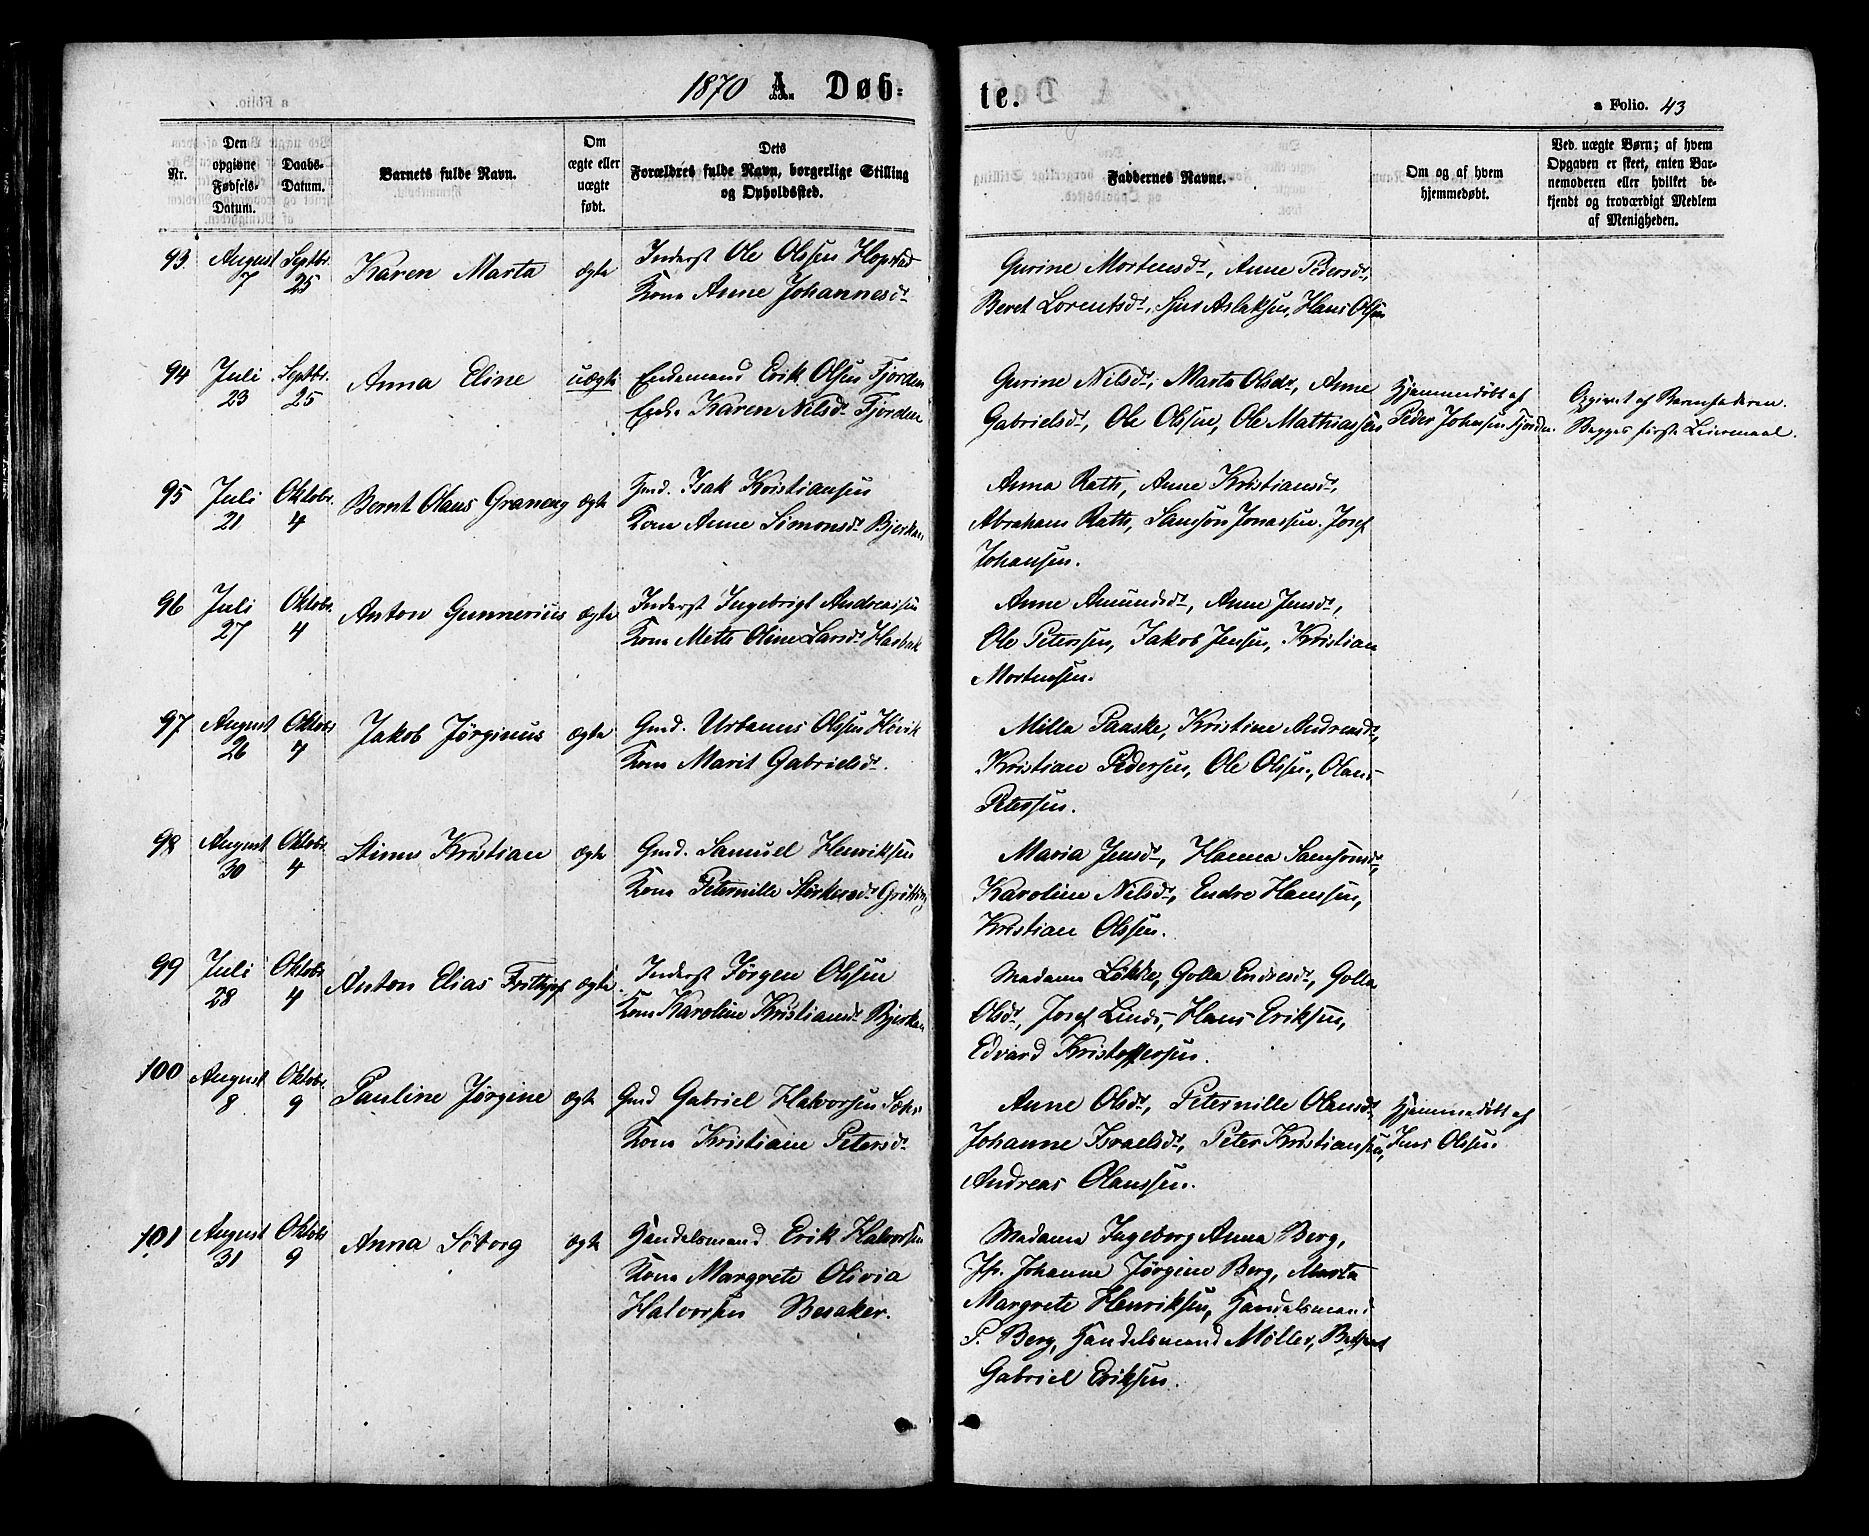 1870 A. Døb-
te.
a Folio. 43
Nr.
Den opgivne Fødsels-Datum.
Daabs-Datum.
Barnets fulde Navn.
Om ægte eller uægte født.
Dets Forældres fulde Navn, borgerlige Stilling og Opholdssted.
Faddernes Navne.
Om og af hvem hjemmedøbt.
Ved uægte Børn; af hvem Opgaven er skeet, enten Barnemoderen eller hvilket bekjendt og troværdigt Medlem af Menigheden.
93. August 7 Septbr. 25 Karen Marta ægte
Inderst Ole Olssen Hopstad
Kone Anne Johannesdt.
Gurine Mortensdt, Anne Pedersdt,
Beret Lorentsdt, Sjur Aslaksen, Hans Olsen
94 Juli 23 Septbr. 25 Anna Eline uægte
Enkemand Erik Olsen Fjorden
Karen Nilsdt. Fjorden
Gurine Nilsdt, Marta Olsdt, Anne
Gabrielsdt, Ole Olssen, Ole Mathiassen
Hjemmedøbt af
Peder Johnsen Fjorden.
Opgivet af Barnefaderen.
Begges første Leiermaal.
95 Juli 21 Oktobr. 4 Bernt Olaus Graneng ægte
Gmd. Isak Kristiansen
Kone Anne Simonsdt Bjerkan
Anna Rath, Anne Kristiansdt,
Abraham Rath, Samson Jonassen. Josef
Johansen.
96 Juli 27 Oktobr. 4 Anton Gunnerius ægte
Inderst Ingebrigt Andreassen
Kone Mette Oline Larsdt
Anne Amundsdt, Anne Jensdt,
Ole Peterssen, Jakob Jensen, Kristian
Mortensen.
97 August 26 Oktobr 4 Jakob Jørginus ægte
Gmd. Urbanus Olssen Høvik
Kone Marit Gabrielsdt.
Milla Paaske, Kristine Andreasdt,
Kristian Pedersen, Ole Olssen, Olaus
Peterssen.
98 August 30 Oktobr. 4 Kristian ægte
Gmd. Samuel Henriksen
Kone Peternille
Maria Jensdt, Hanna Samsonsdt,
Karoline Nilsdt, Endre Hanssen,
Kristian Olssen.
99 Juli 28 Oktobr 4 Anton Elias Frithjof ægte
Inderst Jørgen Olssen
Kone Karoline Kristiansdt Bjerkan
Madame Løkke, Golla Endresdt, Golla
Olsdt, Josef Lund, Hans Eriksen,
Edvard Kristoffersen.
100 August 8 Oktobr. 9 Pauline Jørgine ægte
Gmd Gabriel Halvorsen
Kone Kristiane Petersdt
Anne Olsdt, Peternille Olausdt,
Johanne Israelsdt, Peter Kristiansen,
Andreas Olaussen.
Hjemmedøbt af
Jens Olssen.
101 August 31 Oktobr 9 Anna Søborg ægte
Handelsmand Erik Halvorsen
Kone Margrete Olivia
Halvorsen Besaker.
Madame Ingeborg Anna Berg,
Jfr. Johanne Jørgine Berg, Marta
Margrete Henriksen, Handelsmand
P. Berg, Handelsmand Møller,
Gabriel Eriksen.